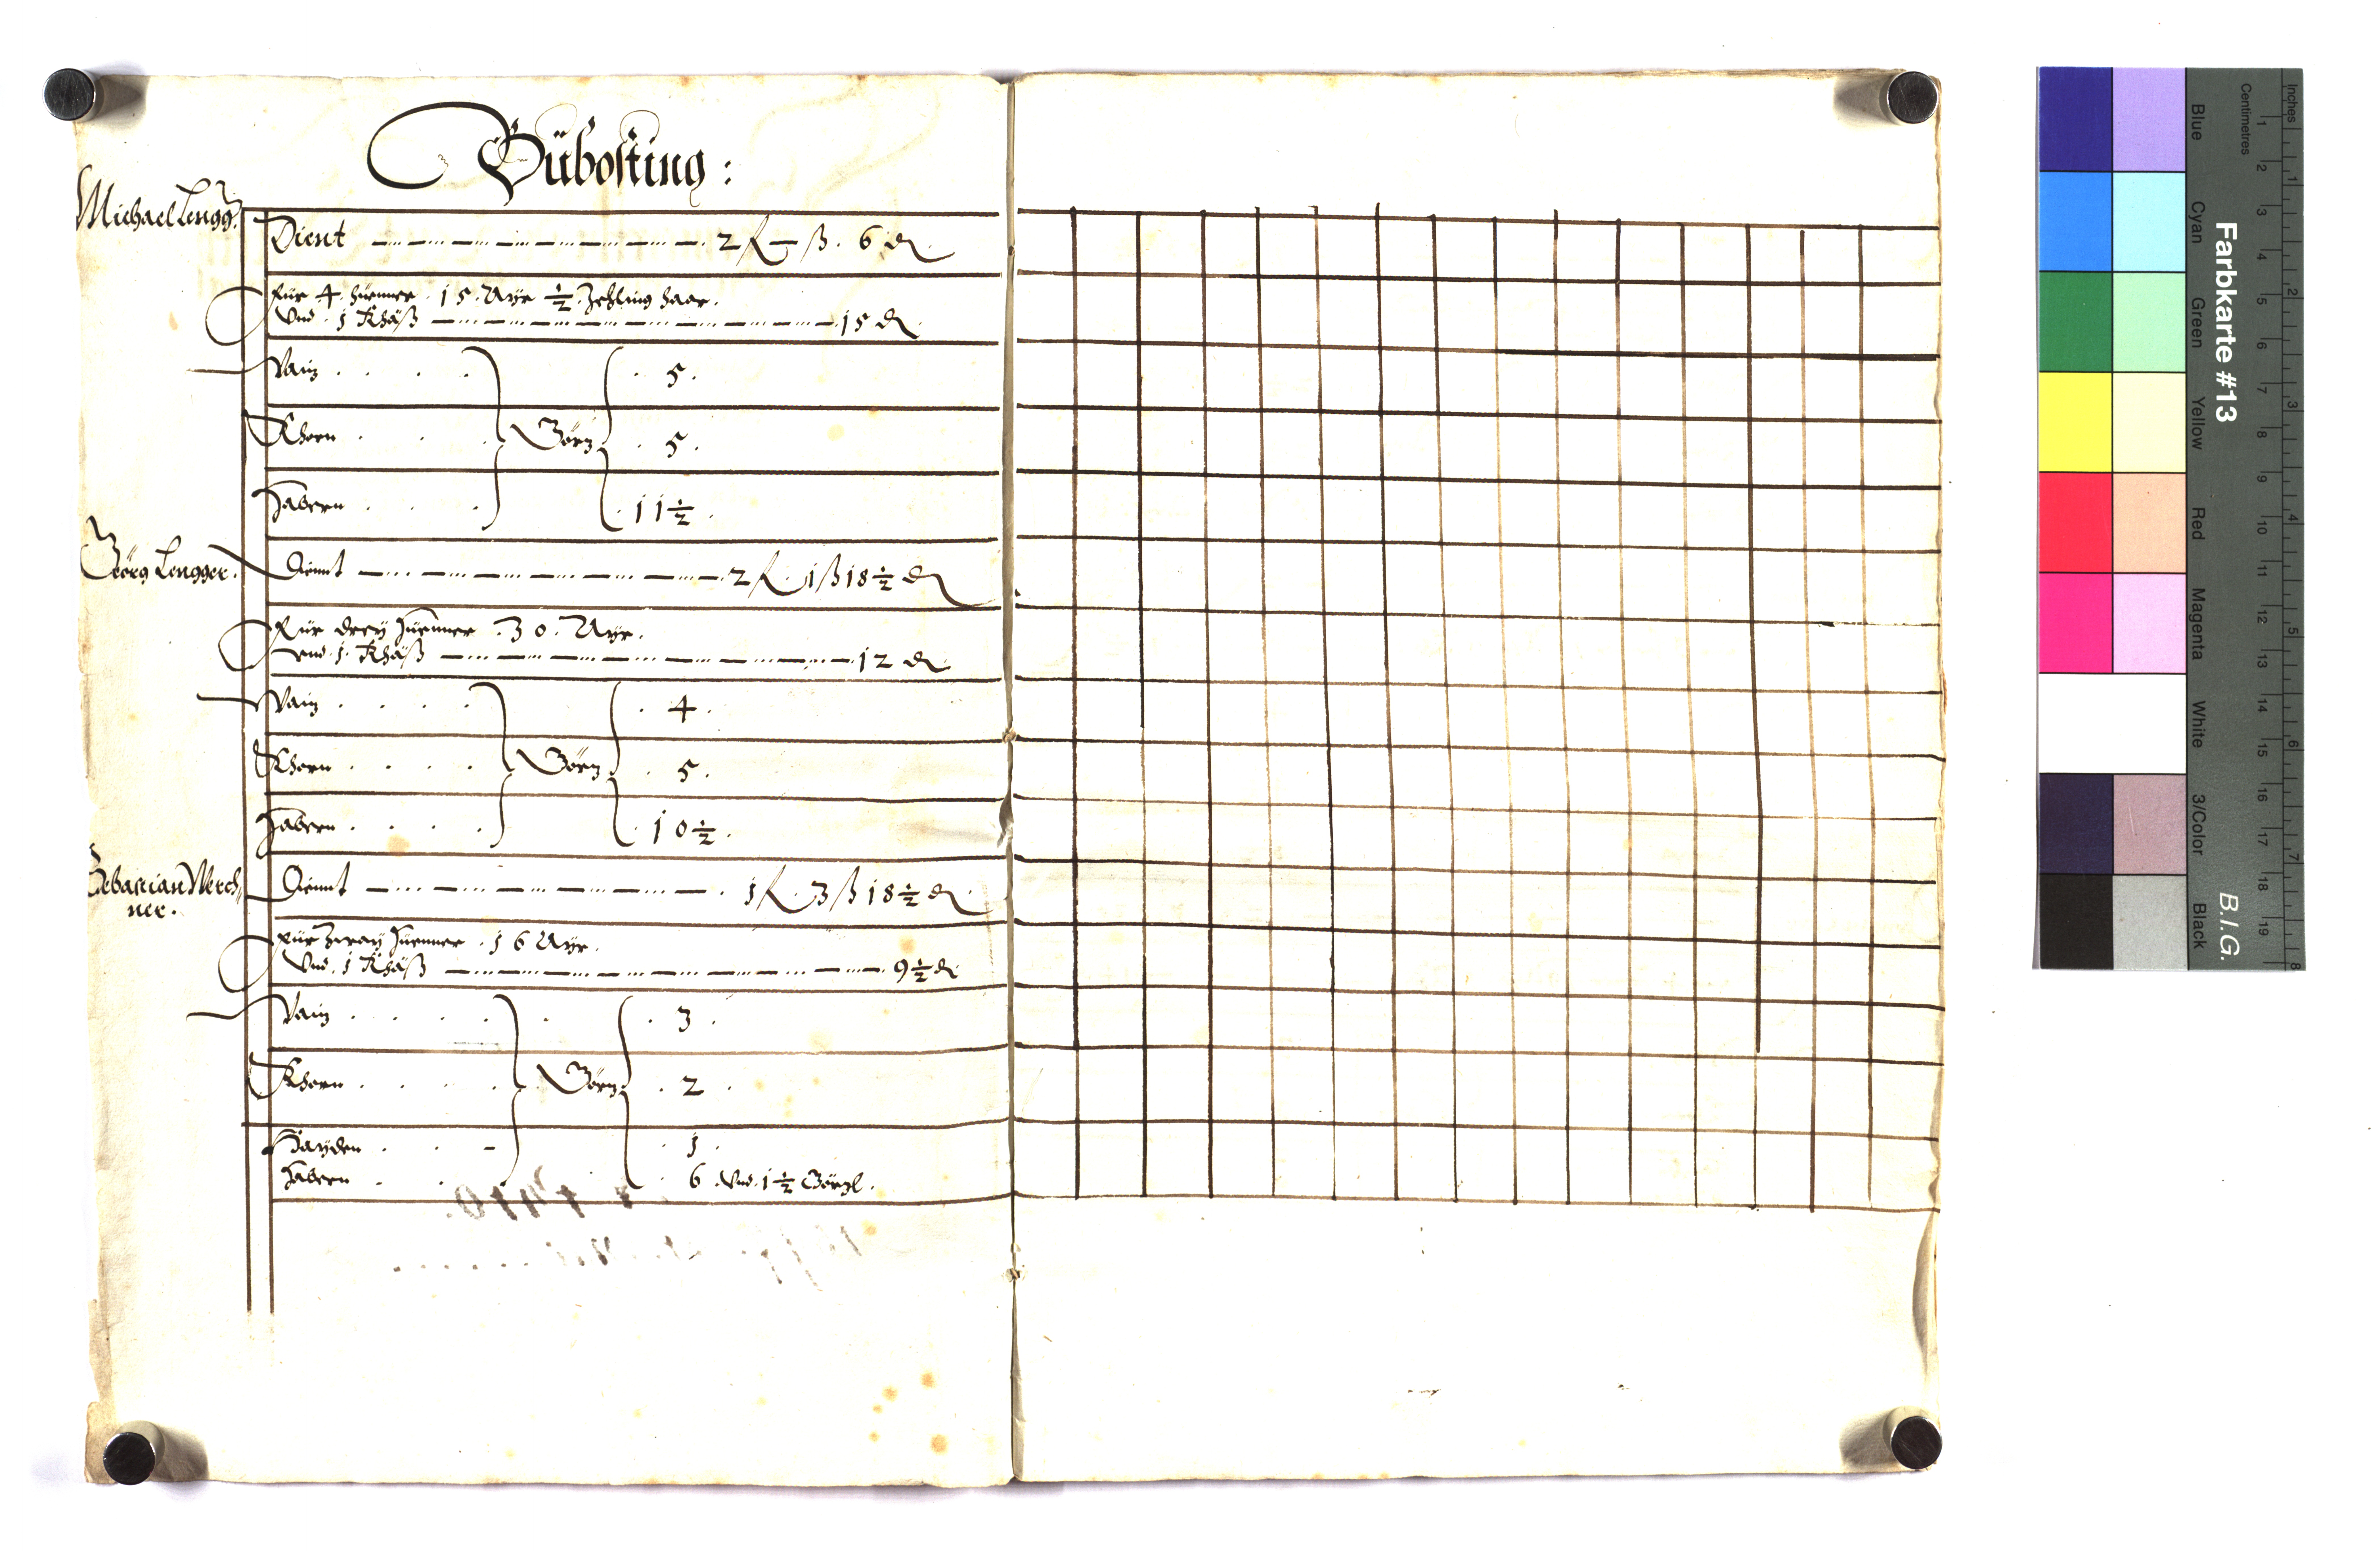 Güboſting :
Michael Lengg:
Dient 2 f — ß . 6 d
für 4 . hüenner . 15 . Ayr ½ Zehling haar .
Vnd . 1 Khäß 15 d
Waiz . . . . 5 .
Khorn . . . . Görz . 5 .
Habern . . . 11½ .
Geörg Lengger . Diennt 2 f . 1 ß 18½ d
für drey hüenner . 30 . Ayr .
vnd . 1 . Khäß 12 d
Waiz . . . . . 4 .
Khorn . . . . Görz . 5 .
Habern . . . . . 10½ .
Sebastian Werch=
ner . Diennt . 1 f . 3 ß 18½ d
für zway hüenner . 16 Ayr .
Vnd . 1 Khäß 9½ d
Waiz . . . . . 3 .
Khorn . . . . . Görz . 2 .
Hayden . . . 1 .
Habern . . . 6 . Vnd . 1½ Görzl .
Farbkarte #13
B.I.G.
Inches
1 2 3 4 5 6 7 8
Centimetres
1 2 3 4 5 6 7 8 9 10 11 12 13 14 15 16 17 18 19
Blue Cyan Green Yellow Red Magenta White 3/Color Black